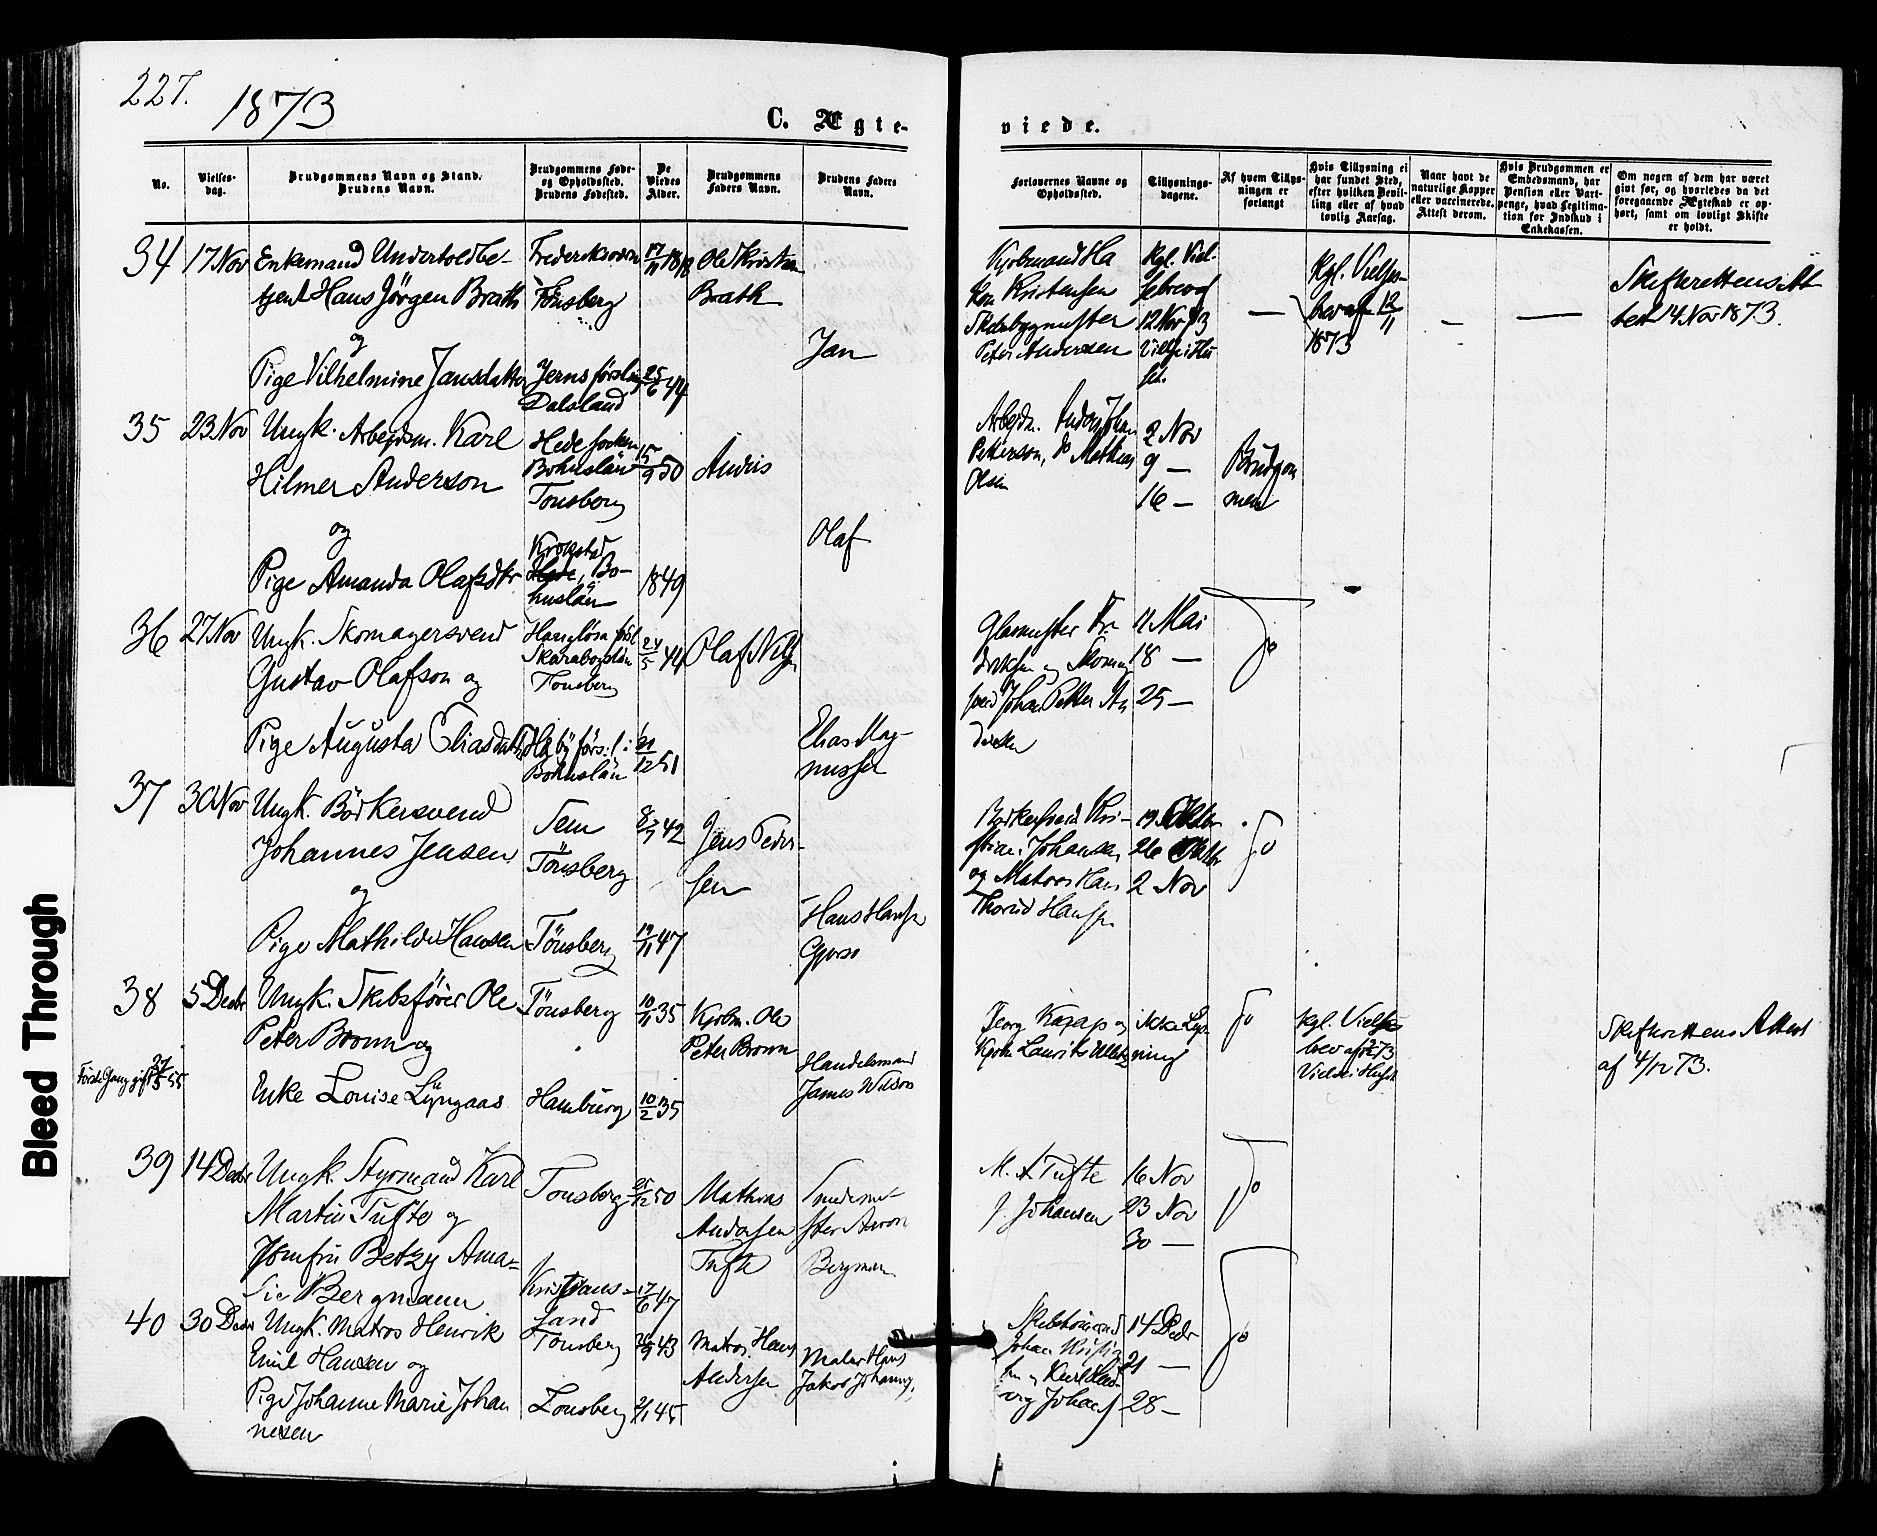 227.
1873
C. Ægte-
viede.
No.
Vielses-
dag.
Brudgommens Navn og Stand.
Brudens Navn.
Brudgommens Føde-
og Opholdssted.
Brudens Fødested.
De
Viedes
Alder.
Brudgommens
Faders Navn.
Brudens Faders
Navn.
Forlovernes Navne og
Opholdssted.
Tillysnings-
dagene.
Af hvem Tillys-
ningen er
forlangt
Hvis Tillysning ei
har fundet Sted,
efter hvilken Bevil-
ling eller af hvad
lovlig Aarsag.
Naar havt de
naturlige Kopper
eller vaccinerede.
Attest derom.
Hvis Brudgommen er
Embedsmand, har
Pension eller Vart-
penge, hvad Legitima-
tion for Indskud i
Enkekassen.
Om nogen af dem har været
gift før, og hvorledes da det
foregaaende Ægteskab er op-
hørt, samt om lovligt Skifte
er holdt.
34 17 Nov Enkemand Undertoldbe-
tjent Hans Jörgen Brath
og
Pige Vilhelmine Jansdatter
Frederiksværn
Tönsberg
Jerns församl
Dalsland
17/11 1818
25/6 44
Ole Kristen
Brath
Jan
Kjöbmand Ha
kon Kristensen
Skibsbygmester
Peter Andersen
Kgl. Viel-
sebrev af
12 Nov 73
Viet i Hu
set.
Kgl. Vielses-
brev af 12/11
1873
—
—
—
Skifterettens Att
test 14 Nov 1873.
35 23 Nov Ungk. Arbejdsm. Karl
Hilmer Anderson
og
Pige Amanda Olafsdtr
Hede socken
Bohuslän
Tonsberg
Krokstad
Hede, Bo-
huslän
15/9 50
1849
Andris
Olaf
Arbejdm. Anders Johan
Petterson, do Mathias
Olsen
2 Nov
9 —
16 —
Brudgom
men
36 27 Nov Ungk. Skomagersvend
Gustav Olafson og
Pige Augusta Eliasdatter
Skaraborgslän
Tonsberg
Bohuslän
24/5 44
21/12 51
Olaf Nils
Elias Mag-
nussen
Glasmester Fr.
driksen og Skomag
svend Johan Petter An
dersen
11 Mai
18 —
25 —
do
37 30 Nov Ungk. Börkersvend
Johannes Jensen
og
Pige Mathilde Hansen
Sem
Tönsberg
Tönsberg
8/7 42
19/11 47
Jens Peder-
sen
Hans Hansen
Gjerso
Bödkersvend Kri-
stian Johansen
og Matros Hans
Thorud Hansen
19 Oktbr
26 Oktbr
2 Nov
do
38 5 Decbr Ungk. Skibsförer Ole
Peter Bronn og
Enke Louise Lyngaas
Förste Gang gift 27/5 55
Tönsberg
Hamburg
10/11 35
10/2 35
Kjöbm. Ole
Peter Bronn
Handelsmand
James Wilson
Georg Kazap og
Kjöbm Laurits Ulletz
ikke Lys
ning
do
Kgl. Vielses
brev af 2/12 73
Viet i Huset
Skifterettens Attest
af 4/12 73.
39 14 Decbr Ungk. Styrmand Karl
Martin Tufte og
Jomfru Betzy Ama-
lie Bergmann
Tonsberg
Kristians-
sand
25/12 50
17/6 47
Mathias
Andersen
Tufte
Smedeme-
ster Aron
Bergman
M. A Tufte
J. Johansen
16 Nov
23 Nov
30 —
do
40 30 Decbr Ungk. Matros Henrik
Emil Hansen og
Pige Johanne Marie Johan
nesen
Tonsberg
Tonsberg
26/9 43
2/1 45
Matros Hans
Andersen
Maler Hans
Jakob Johannes.
Skibstömmermd
Johan Kristian
sen og Karl Lud-
vig Johans
14 Decbr
21 —
28 —
do
Bleed Through